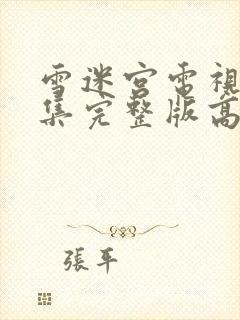 雪迷宮電視
集完整版高
張平